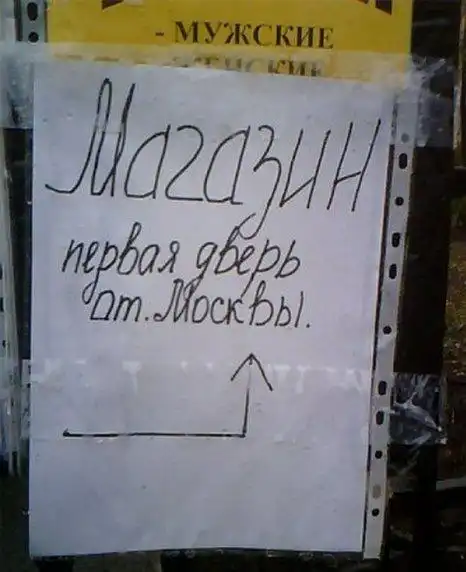 - МУЖСКИЕ
- ЖЕНСКИЕ
Магазин
первая дверь
от. Москвы.